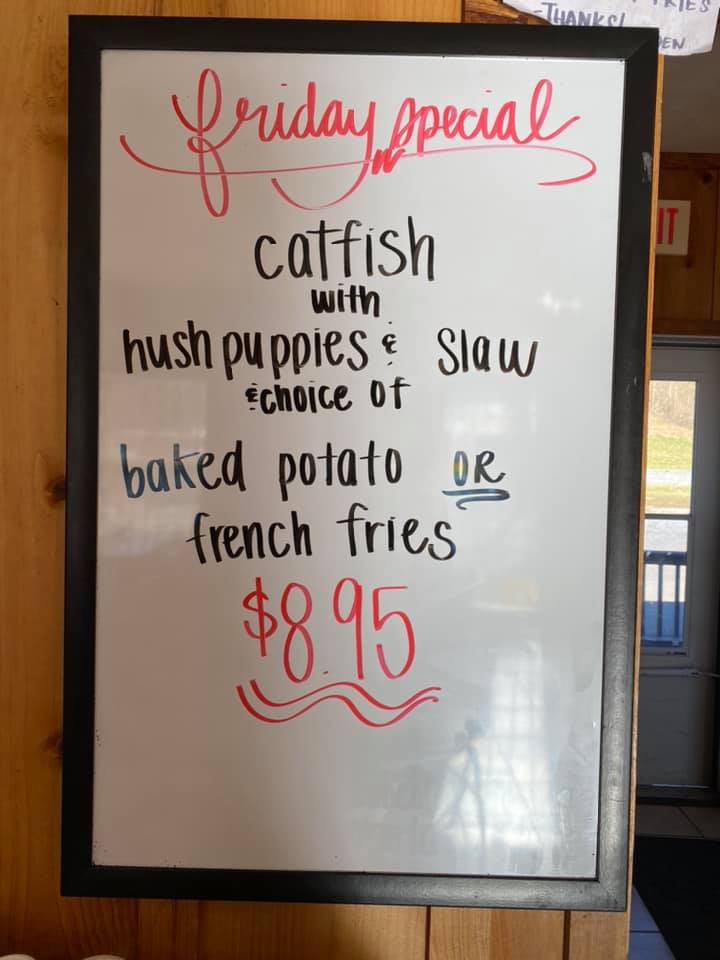 friday special
catfish
with
hush puppies & slaw
& choice of
baked potato OR
french fries
$8.95
-THANKS!
IT